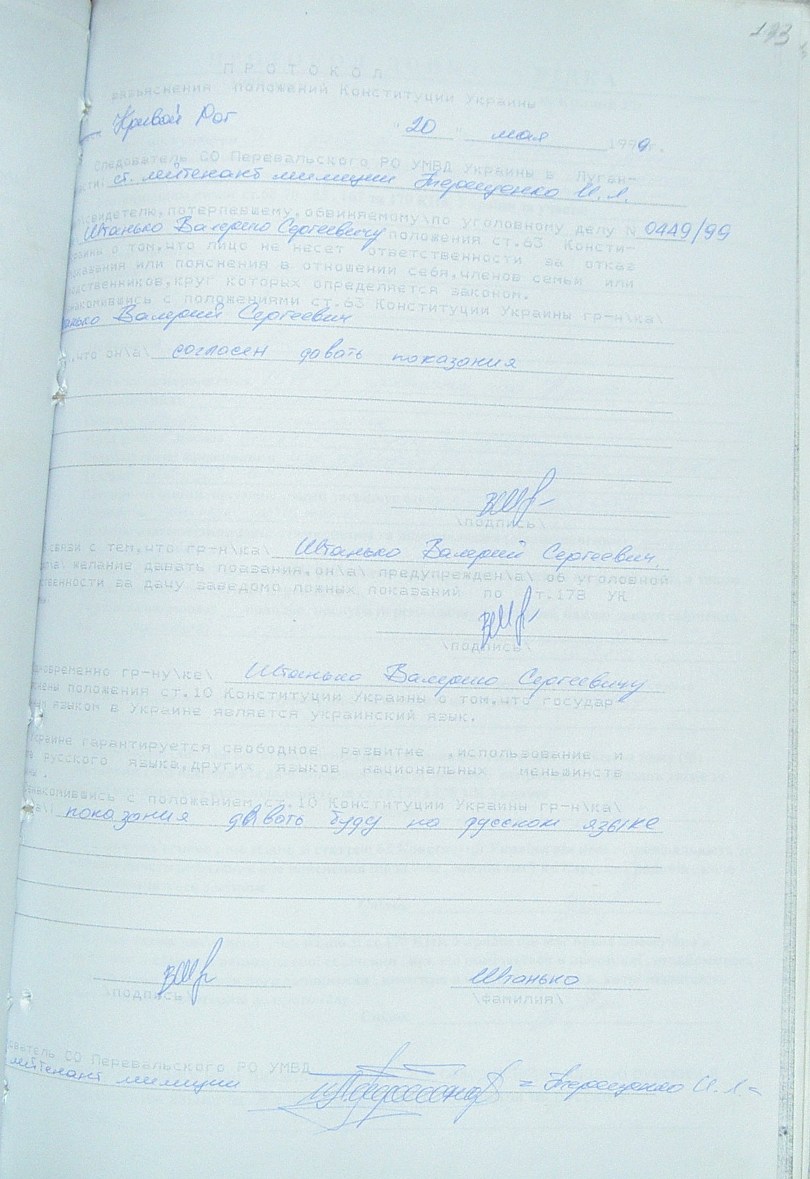 193
ПРОТОКОЛ
разъяснения положений Конституции Украины
Кривой Рог "20" мая 1999г.
Следователь СО Перевальского РО УМВД Украины в Луган-
ст. лейтенант милиции Терещенко И.Л.
свидетелю,потерпевшему,обвиняемому\по уголовному делу N 0449/99
Штанько Валерию Сергеевичу положения ст.63 Консти-
о том,что лицо не несет ответственности за отказ
показания или пояснения в отношении себя,членов семьи или
родственников,круг которых определяется законом.
знакомившись с положениями ст.63 Конституции Украины гр-н\ка\
анько Валерий Сергеевич
,что он\а\ согласен давать показания
\подпись\
связи с тем,что гр-н\ка\ Штанько Валерий Сергеевич
желание давать поазания,он\а\ предупрежден\а\ об уголовной
ственности за дачу заведомо ложных показаний по ст.178 УК
\подпись\
дновременно гр-ну\ке\ Штанько Валерию Сергеевичу
нены положения ст.10 Конституции Украины о том,что государ
языком в Украине является украинский язык.
Украине гарантируется свободное развитие ,использование и
русского языка,других языков национальных меньшинств
знакомившись с положением ст.10 Конституции Украины гр-н\ка\
показания давать буду на русском языке
Штанько
\подпись\ \фамилия\
дователь СО Перевальского РО УМВД
лейтенант милиции = Терещенко И.Л. =